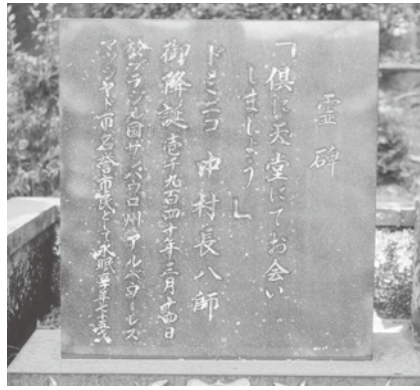 霊碑
「倶に天堂にてお会い
しましょう」
ドミニコ 中村長八師
御降誕 壱千九百四十年三月十四日
於ブラジル国サンパウロ州アルベローレス
マッシャド市名誉市民として永眠